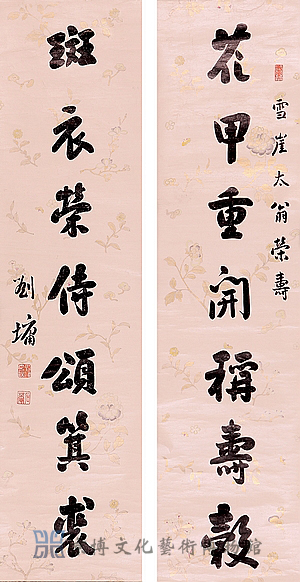 雪崖太翁榮壽
花甲重開稱壽穀
斑衣榮侍頌箕裘
劉墉
博文化藝術博物館